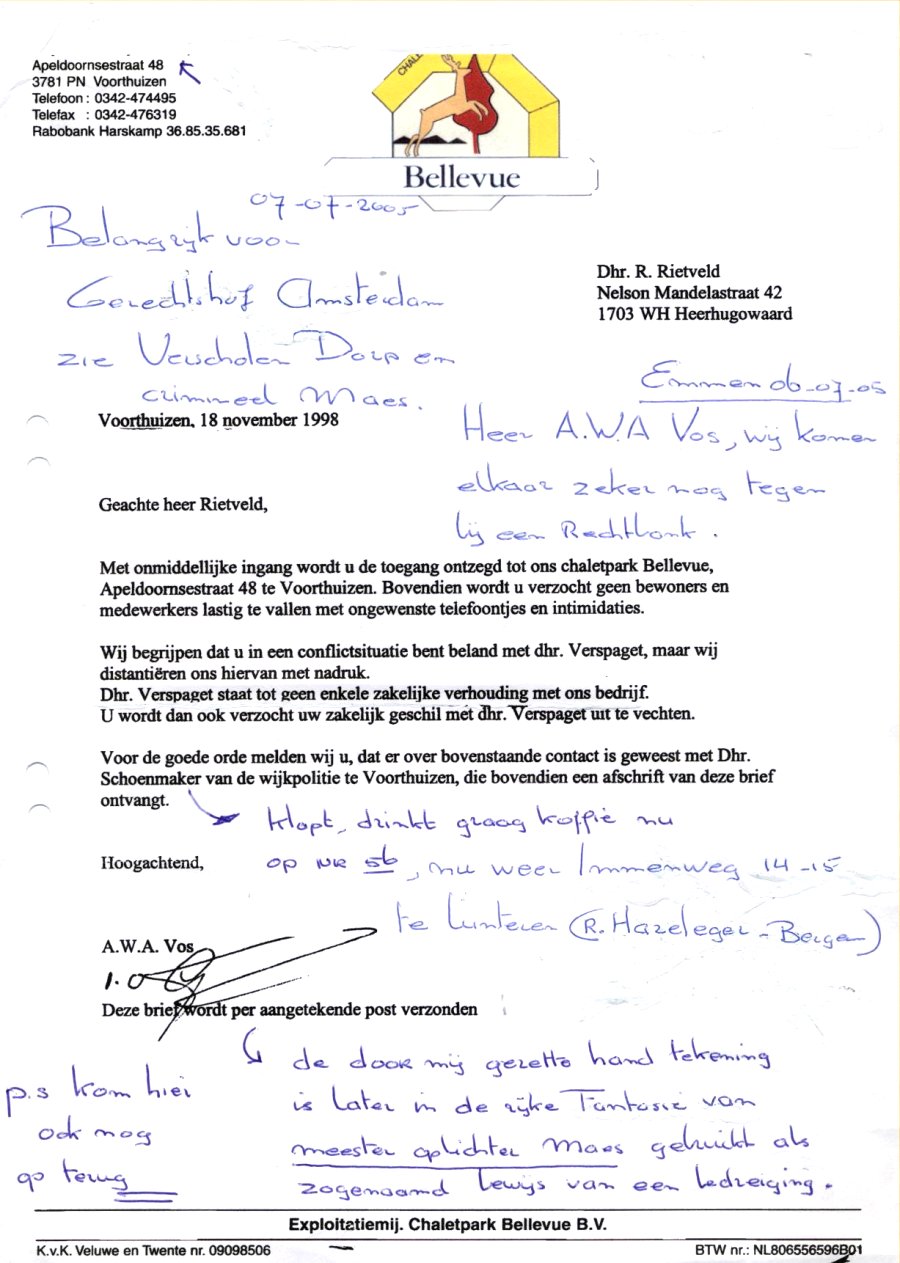 Apeldoornsestraat 48
3781 PN Voorthuizen
Telefoon : 0342-474495
Telefax : 0342-476319
Rabobank Harskamp 36.85.35.681
CHALE
Bellevue
07-07-2005
Belangrijk voor
Gerechtshof Amsterdam
zie Verscholen Dorp en
crimineel Maes.
Dhr. R. Rietveld
Nelson Mandelastraat 42
1703 WH Heerhugowaard
Emmen 06-07-05
Heer A.W.A Vos, wij komen
elkaar zeker nog tegen
bij een Rechtbank.
Voorthuizen, 18 november 1998
Geachte heer Rietveld,
Met onmiddellijke ingang wordt u de toegang ontzegd tot ons chaletpark Bellevue,
Apeldoornsestraat 48 te Voorthuizen. Bovendien wordt u verzocht geen bewoners en
medewerkers lastig te vallen met ongewenste telefoontjes en intimidaties.
Wij begrijpen dat u in een conflictsituatie bent beland met dhr. Verspaget, maar wij
distantiëren ons hiervan met nadruk.
Dhr. Verspaget staat tot geen enkele zakelijke verhouding met ons bedrijf.
U wordt dan ook verzocht uw zakelijk geschil met dhr. Verspaget uit te vechten.
Voor de goede orde melden wij u, dat er over bovenstaande contact is geweest met Dhr.
Schoenmaker van de wijkpolitie te Voorthuizen, die bovendien een afschrift van deze brief
ontvangt.
klopt, drinkt graag koffie nu
op NR 56, nu weer Immenweg 14-15
te Lunteren (R. Hazeleger - Bergen)
Hoogachtend,
A.W.A. Vos
Deze brief wordt per aangetekende post verzonden
de door mij gezette hand tekening
is later in de rijke Fantasie van
meester oplichter Maes gebruikt als
zogenaamd bewijs van een bedreiging.
p.s kom hier
ook nog
op terug
Exploitatiemij. Chaletpark Bellevue B.V.
K.v.K. Veluwe en Twente nr. 09098506
BTW nr.: NL806556596B01